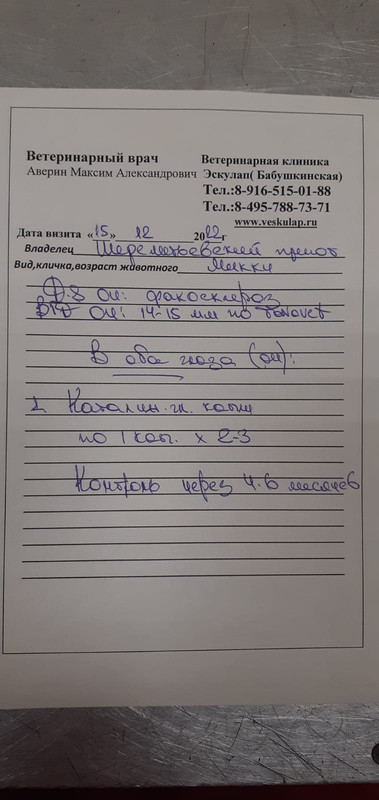 Ветеринарный врач Ветеринарная клиника
Аверин Максим Александрович Эскулап( Бабушкинская)
Тел.:8-916-515-01-88
Тел.:8-495-788-73-71
www.veskulap.ru
Дата визита «15» 12 2022г
Владелец Шереметьевский приют
Вид,кличка,возраст животного Микки
D.S OU: факосклероз
ВГД OU: 14-15 мм по Tonovet
В оба глаза (OU):
1. Каталин гл. капли
по 1 кап. х 2-3
Контроль через 4-6 месяцев